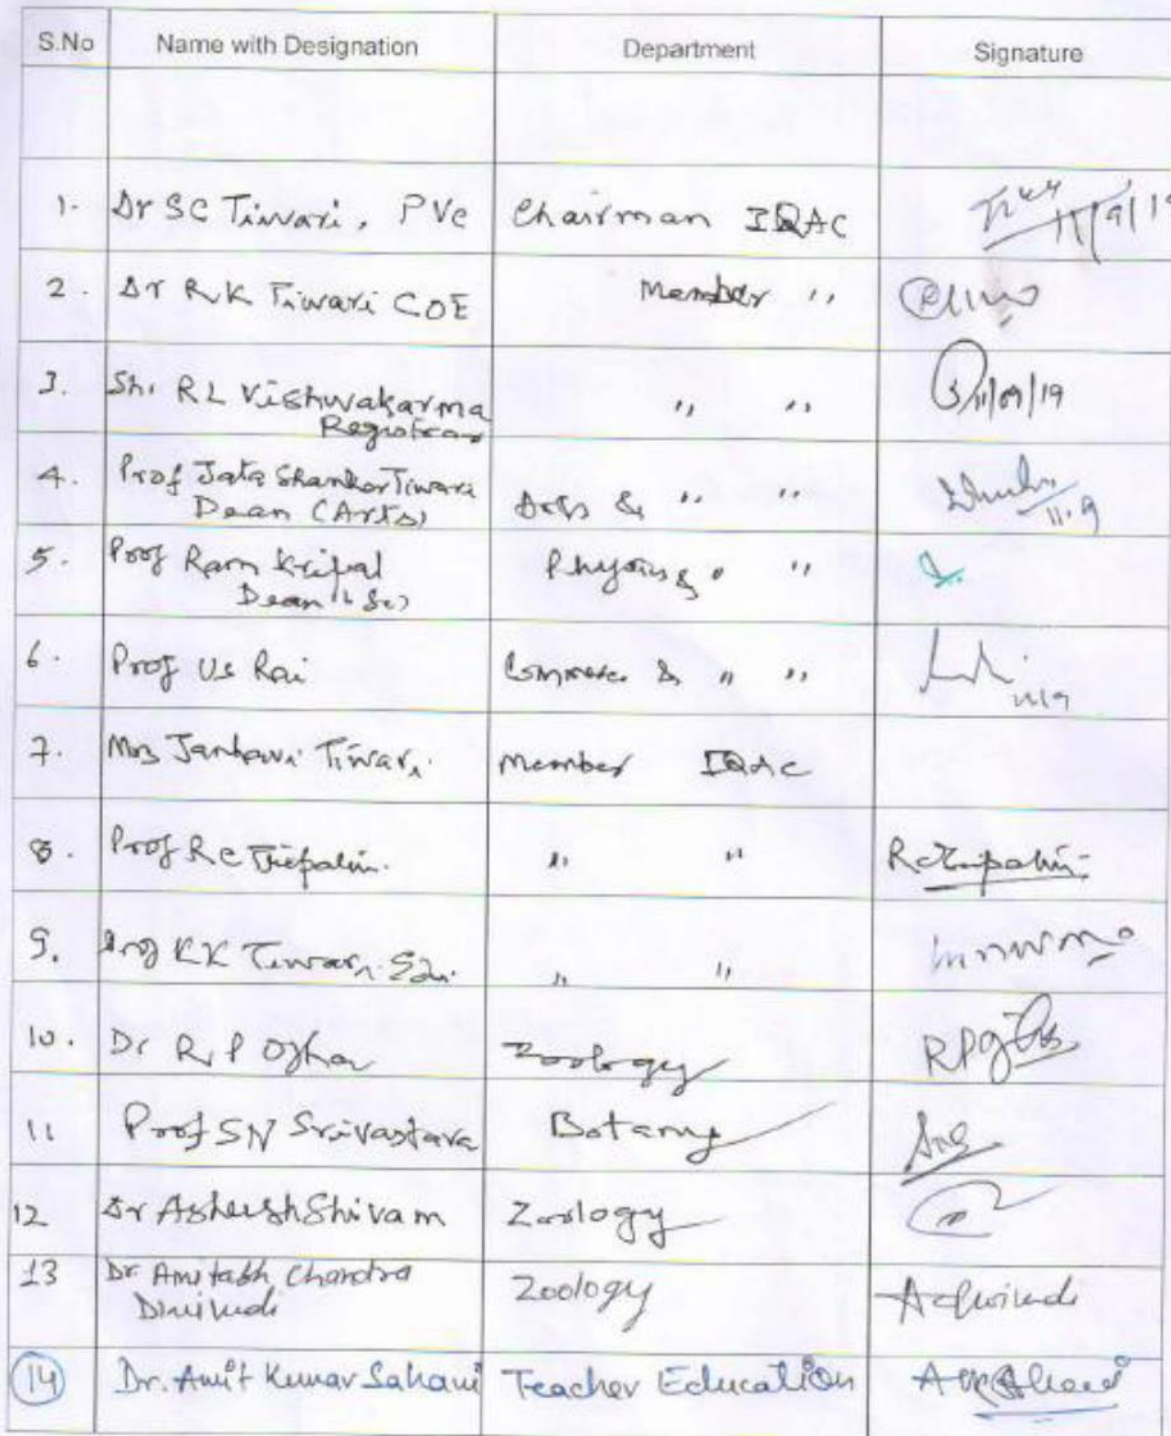 S.No Name with Designation Department Signature
1. Dr SC Tiwari, PVC Chairman IQAC 11/9/19
2. Dr R.K Tiwari COE Member "
3. Sh. RL Vishwakarma " " 11/09/19
Registrar
4. Prof Jata Shankar Tiwari
Dean (Arts) Arts & " " 11.9
5. Prof Ram Kripal Physics & " "
Dean (Sc)
6. Prof US Rai Commerce & " " 11/9
7. Mrs Janhavi Tiwari Member IQAC
8. Prof RC Tripathi " " RC Tripathi
9. Prof KK Tiwari " "
10. Dr R.P Ojha Zoology RPOjha
11 Prof SN Srivastava Botany
12 Dr Asheesh Shivam Zoology
13 Dr. Amitabh Chandra Zoology ACDwivedi
Dwivedi
14 Dr. Amit Kumar Sahani Teacher Education AKSahani